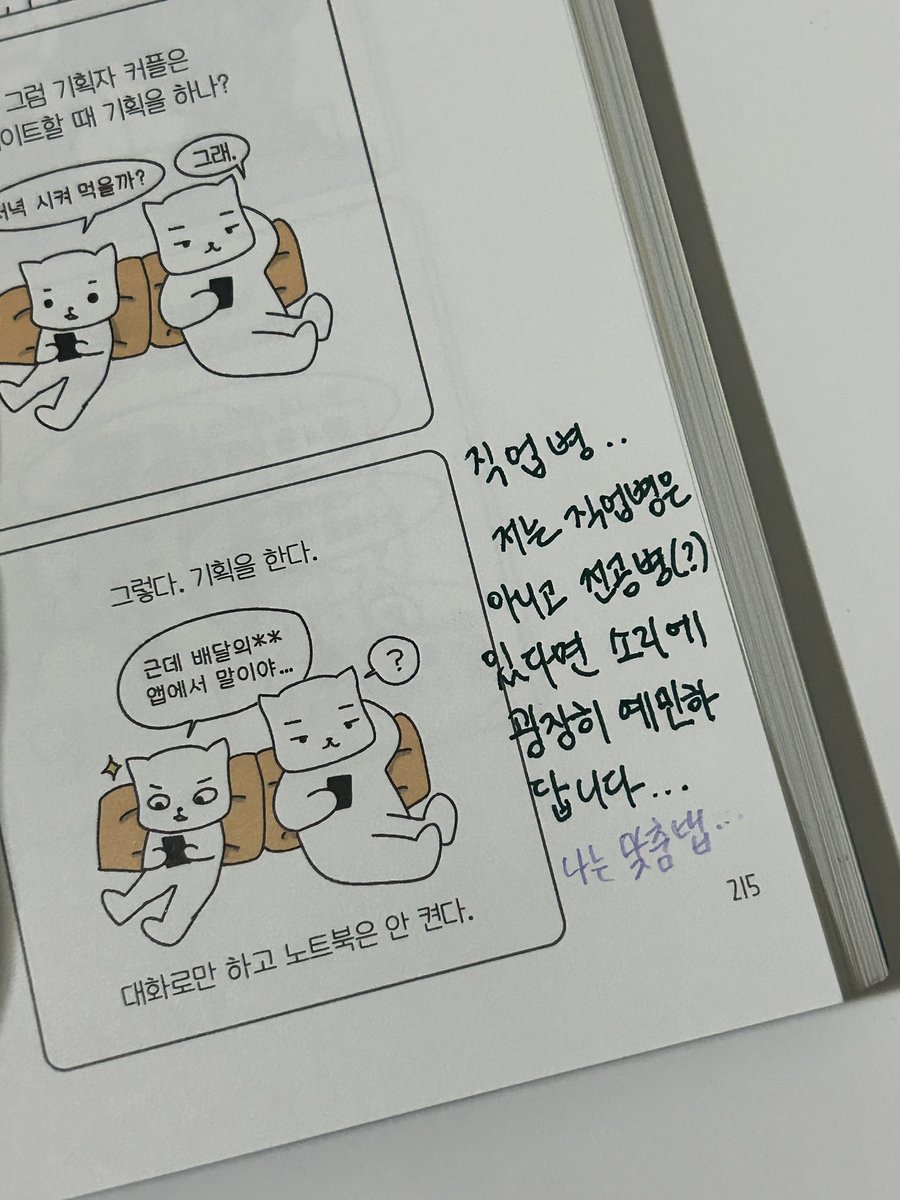 그럼 기획자 커플은
이트할 때 기획을 하나?
저녁 시켜 먹을까?
그래.
그렇다. 기획을 한다.
근데 배달의**
앱에서 말이야...
?
대화로만 하고 노트북은 안 켠다.
직업병..
저는 직업병은
아니고 전공병(?)
있다면 소리에
굉장히 예민하
답니다...
나는 맞춤법...
215